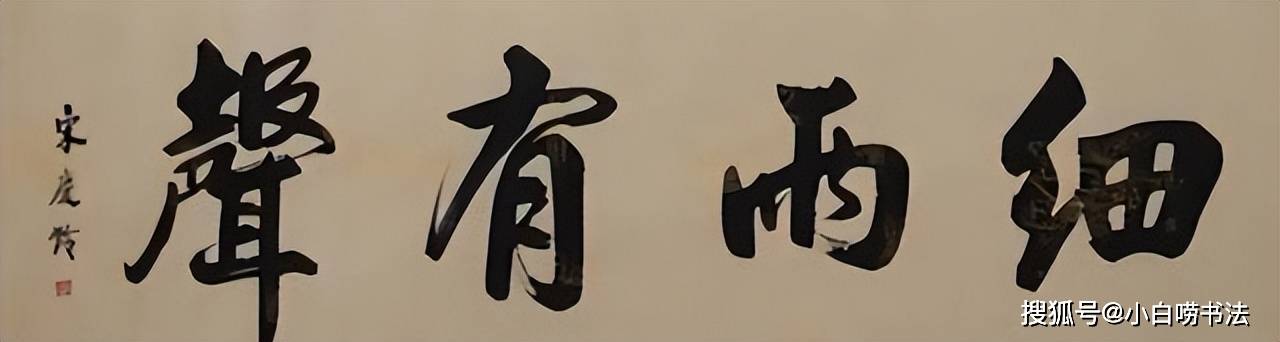 细雨有聲
宋慶齡
搜狐号@小白唠书法